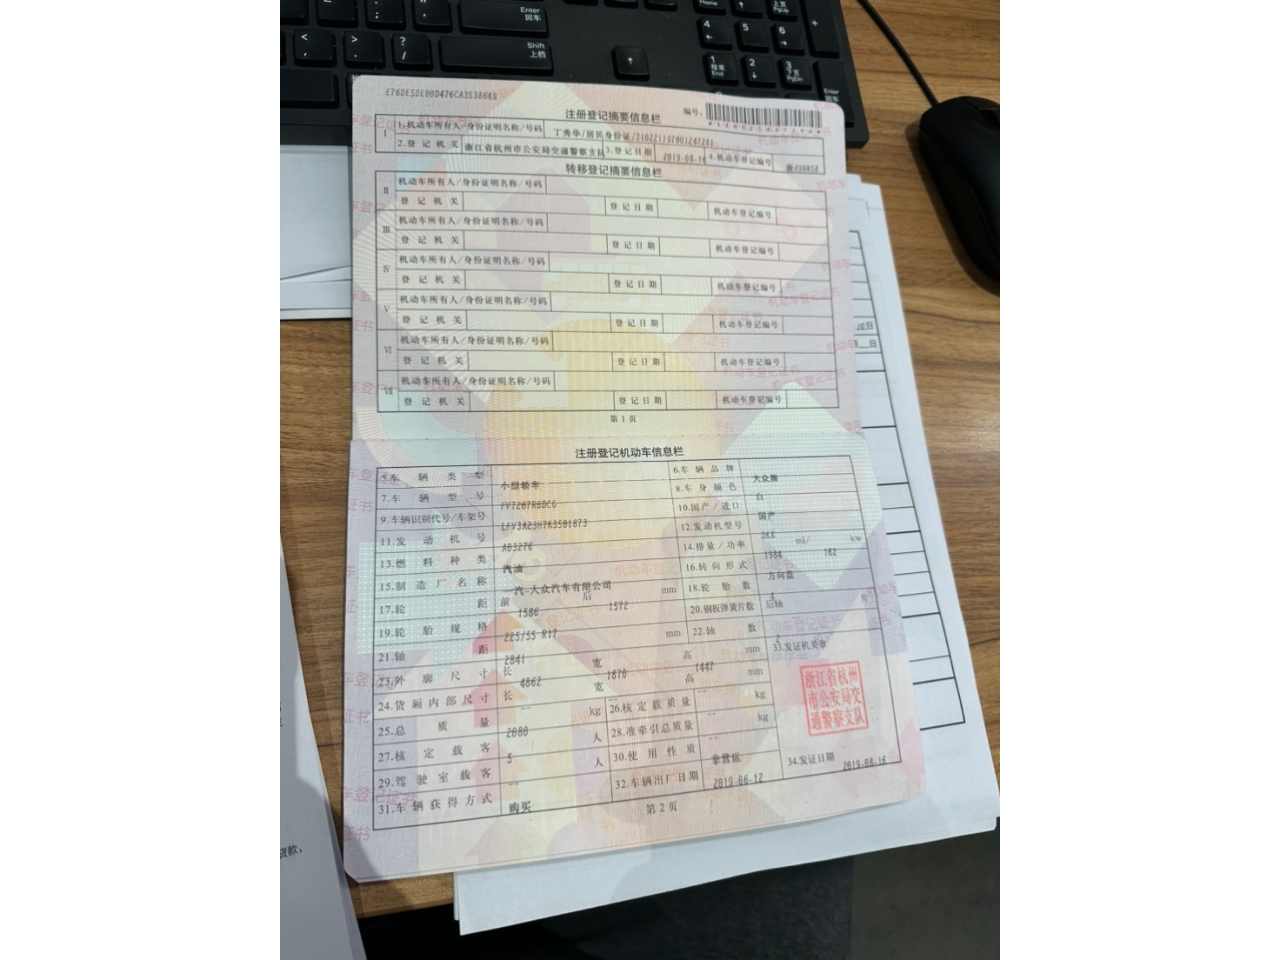 Enter
回车
Shift
上档
Home
PgUp
4
5
6
1
结束
End
2
3
下页
PgDn
Enter
注册登记摘要信息栏
编号:
I
1.机动车所有人/身份证明名称/号码
丁秀华/居民身份证/
2.登记机关
浙江省杭州市公安局交通警察支队
3.登记日期
2019-08-16
4.机动车登记编号
转移登记摘要信息栏
II
机动车所有人/身份证明名称/号码
登记机关
登记日期
机动车登记编号
III
机动车所有人/身份证明名称/号码
登记机关
登记日期
机动车登记编号
IV
机动车所有人/身份证明名称/号码
登记机关
登记日期
机动车登记编号
V
机动车所有人/身份证明名称/号码
登记机关
登记日期
机动车登记编号
VI
机动车所有人/身份证明名称/号码
登记机关
登记日期
机动车登记编号
VII
机动车所有人/身份证明名称/号码
登记机关
登记日期
机动车登记编号
第1页
注册登记机动车信息栏
5.车辆类型
小型轿车
6.车辆品牌
大众牌
7.车辆型号
FV7207RBDCG
8.车身颜色
白
9.车辆识别代号/车架号
LFV3A23H7K3501873
10.国产/进口
国产
11.发动机号
A83276
12.发动机型号
DKX
13.燃料种类
汽油
14.排量/功率
1984 ml/ 162 kw
15.制造厂名称
一汽-大众汽车有限公司
16.转向形式
方向盘
17.轮距
前 1586 后 1572 mm
18.轮胎数
4
19.轮胎规格
225/55 R17
20.钢板弹簧片数
后轴 片
21.轴距
2841 mm
22.轴数
2
23.外廓尺寸
长 4862 宽 1870 高 1447 mm
33.发证机关章
24.货厢内部尺寸
长 -- 宽 -- 高 -- mm
浙江省杭州
市公安局交
通警察支队
25.总质量
2080 kg
26.核定载质量
-- kg
27.核定载客
5 人
28.准牵引总质量
-- kg
29.驾驶室载客
-- 人
30.使用性质
非营运
31.车辆获得方式
购买
32.车辆出厂日期
2019-06-12
34.发证日期
2019-08-16
第2页
贷款,